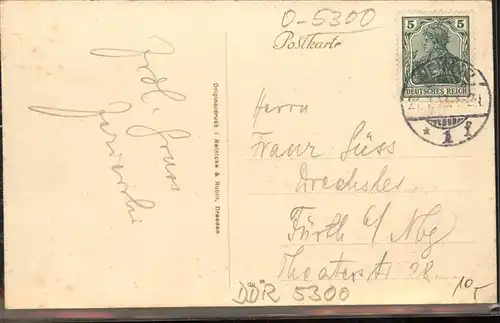 O-5300
Postkarte
5 5
DEUTSCHES REICH
* 1 f
Frdl. Gruss
Originaldruck i Reinicke & Rubin, Dresden
Herrn
Franz Süss
Drechsler
Fürth b/ Nbg
Theaterstr
DDR 5300
10,-